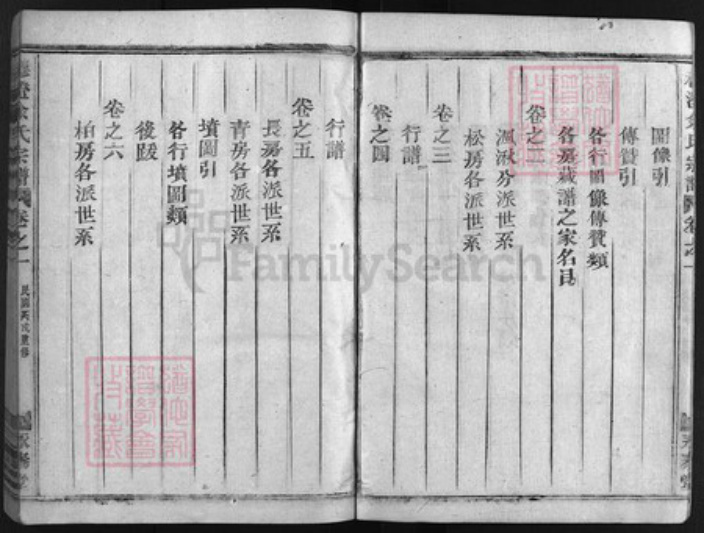 圖像引
傳贊引
各行圖像傳贊類
各房藏譜之家名目
卷之二
渢湫分派世系
松房各派世系
卷之三
行譜
卷之四
行譜
卷之五
長房各派世系
青房各派世系
墳圖引
各行墳圖類
後跋
卷之六
柏房各派世系
氏宗譜
卷之一
民國
重修
FamilySearch